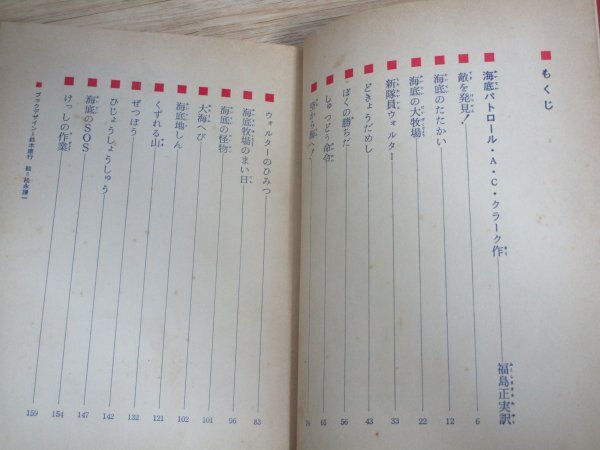 もくじ
海底パトロール・A・C・クラーク作
福島正実訳
敵を発見! 6
海底のたたかい 12
海底の大牧場 22
新隊員ウォルター 33
どきょうだめし 43
ぼくの勝ちだ 56
しゅつどう命令 65
空から海へ! 74
ウォルターのひみつ 83
海底牧場のまい日 96
海底の怪物 101
大海へび 102
海底地しん 121
くずれる山 132
ぜつぼう 142
ひじょうしょうしゅう 147
海底のSOS 154
けっしの作業 159
ブックデザイン=鈴木康行 絵=